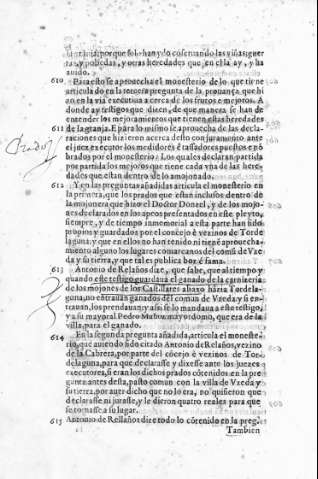 dancia, porque sol- han ydo cosernando las viñas guer
tas, y posiedas, y otras heredades que en ella ay, y ha
auido.
610 Para esto se aprouecha el monesterio de lo que tiene
articulado en la tercera pregunta de la prouança que hi
zo en la via executiua acerca de los frutos e mejoros. A
donde ay testigos que dizen, de que manera se han de
entender los mejoramientos que tienen estas heredades
611 de la granja. E para lo mismo se aprouecha de las decla-
raciones que hizieron acerca desto conjuramento ante
el juez executor los medidores e tassadores puestos e nõ
brados por el monesterio. Los quales declaran partida
por partida los mejoros que tiene cada vna de las here-
dades que estan dentro de lo amojonado.
612 Y en las preguntas añadidas articula el monesterio en
la primera, que los prados que estan inclusos dentro de
la mojonera que hizo el Doctor Donael, y de los mojo-
nes declarados en los apeos presentados en este pleyto,
siempre, y de tiempo immemorial a esta parte han sido
propios y guardados por el concejo e vezinos de Torde
laguna: y que en ellos no han tenido ni tienẽ aprouecha-
miento alguno los lugares comarcanos del comũ de Vze
da y su tierra, y que tal es publica boz e fama.
613 Antonio de Relaños dize, que sabe, que al tiempo y
quando este testigo guardaua el ganado de la carniceria
de los mojones de los Castillares abaxo házia Torde
laguna, no entrauan ganados del comun de Vzeda y si en-
trauan, los prendauan: y assi se lo mandaua a este testigo,
y a su mayoral Pedro Muñoz mayordomo, que era de la
villa para el ganado.
614 En la segunda pregunta añadida, articula el moneste-
rio, que auiendo sido citado Antonio de Relaños, vezino
de la Cabrera, por parte del cõcejo è vezinos de Tor-
delaguna, para que declarasse y dixesse ante los juezes e
executores, si eran los dichos prados cõtenidos en la pre
gunta antes desta, pasto comun con la villa de Vzeda y
su tierra, por auer dicho que no lo era, no quisieron que
declarasse ni jurasse, y le dieron quatro reales para que
se tornasse a su lugar.
615 Antonio de Rellaños dize todo lo cõtenido en la preg.
Tambien
Prados